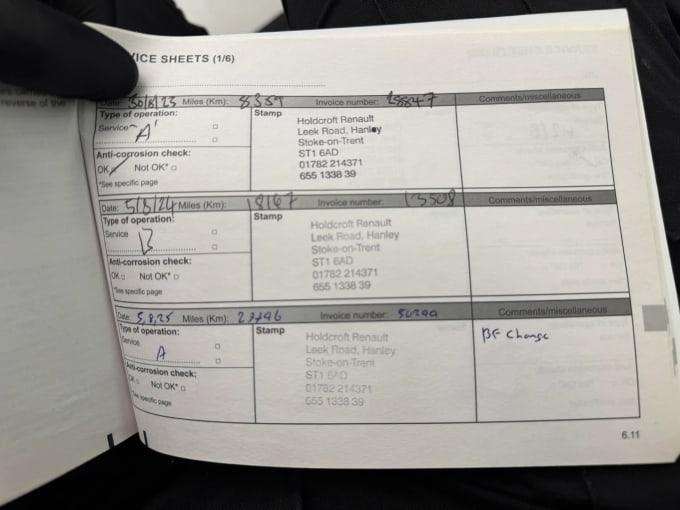 ICE SHEETS (1/6)
reverse of the
Date: 30/8/23 Miles (Km): 8359 Invoice number: Comments/miscellaneous
Type of operation: Stamp
Service 'A'
Anti-corrosion check:
OK Not OK*
*See specific page
Holdcroft Renault
Leek Road, Hanley
Stoke-on-Trent
ST1 6AD
01782 214371
655 1338 39
Date: 5/8/24 Miles (Km): 18167 Invoice number: 13508 Comments/miscellaneous
Type of operation: Stamp
Service B
Anti-corrosion check:
OK Not OK*
*See specific page
Holdcroft Renault
Leek Road, Hanley
Stoke-on-Trent
ST1 6AD
01782 214371
655 1338 39
Date: 5,8,25 Miles (Km): Invoice number: Comments/miscellaneous
Type of operation: Stamp
Service A
Anti-corrosion check:
OK Not OK*
*See specific page
Holdcroft Renault
Leek Road, Hanley
Stoke-on-Trent
ST1 6AD
01782 214371
655 1338 39
BF Change
6.11